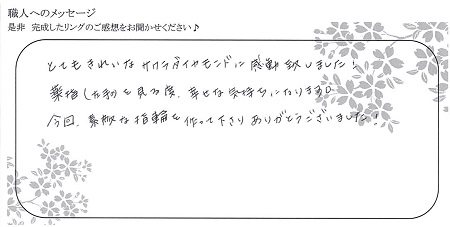 職人へのメッセージ
是非 完成したリングのご感想をお聞かせください♪
とてもきれいなサクラダイヤモンドに感動致しました!
薬指(左手)を見る度、幸せな気持ちになります。
今回、素敵な指輪を作って下さりありがとうございました!